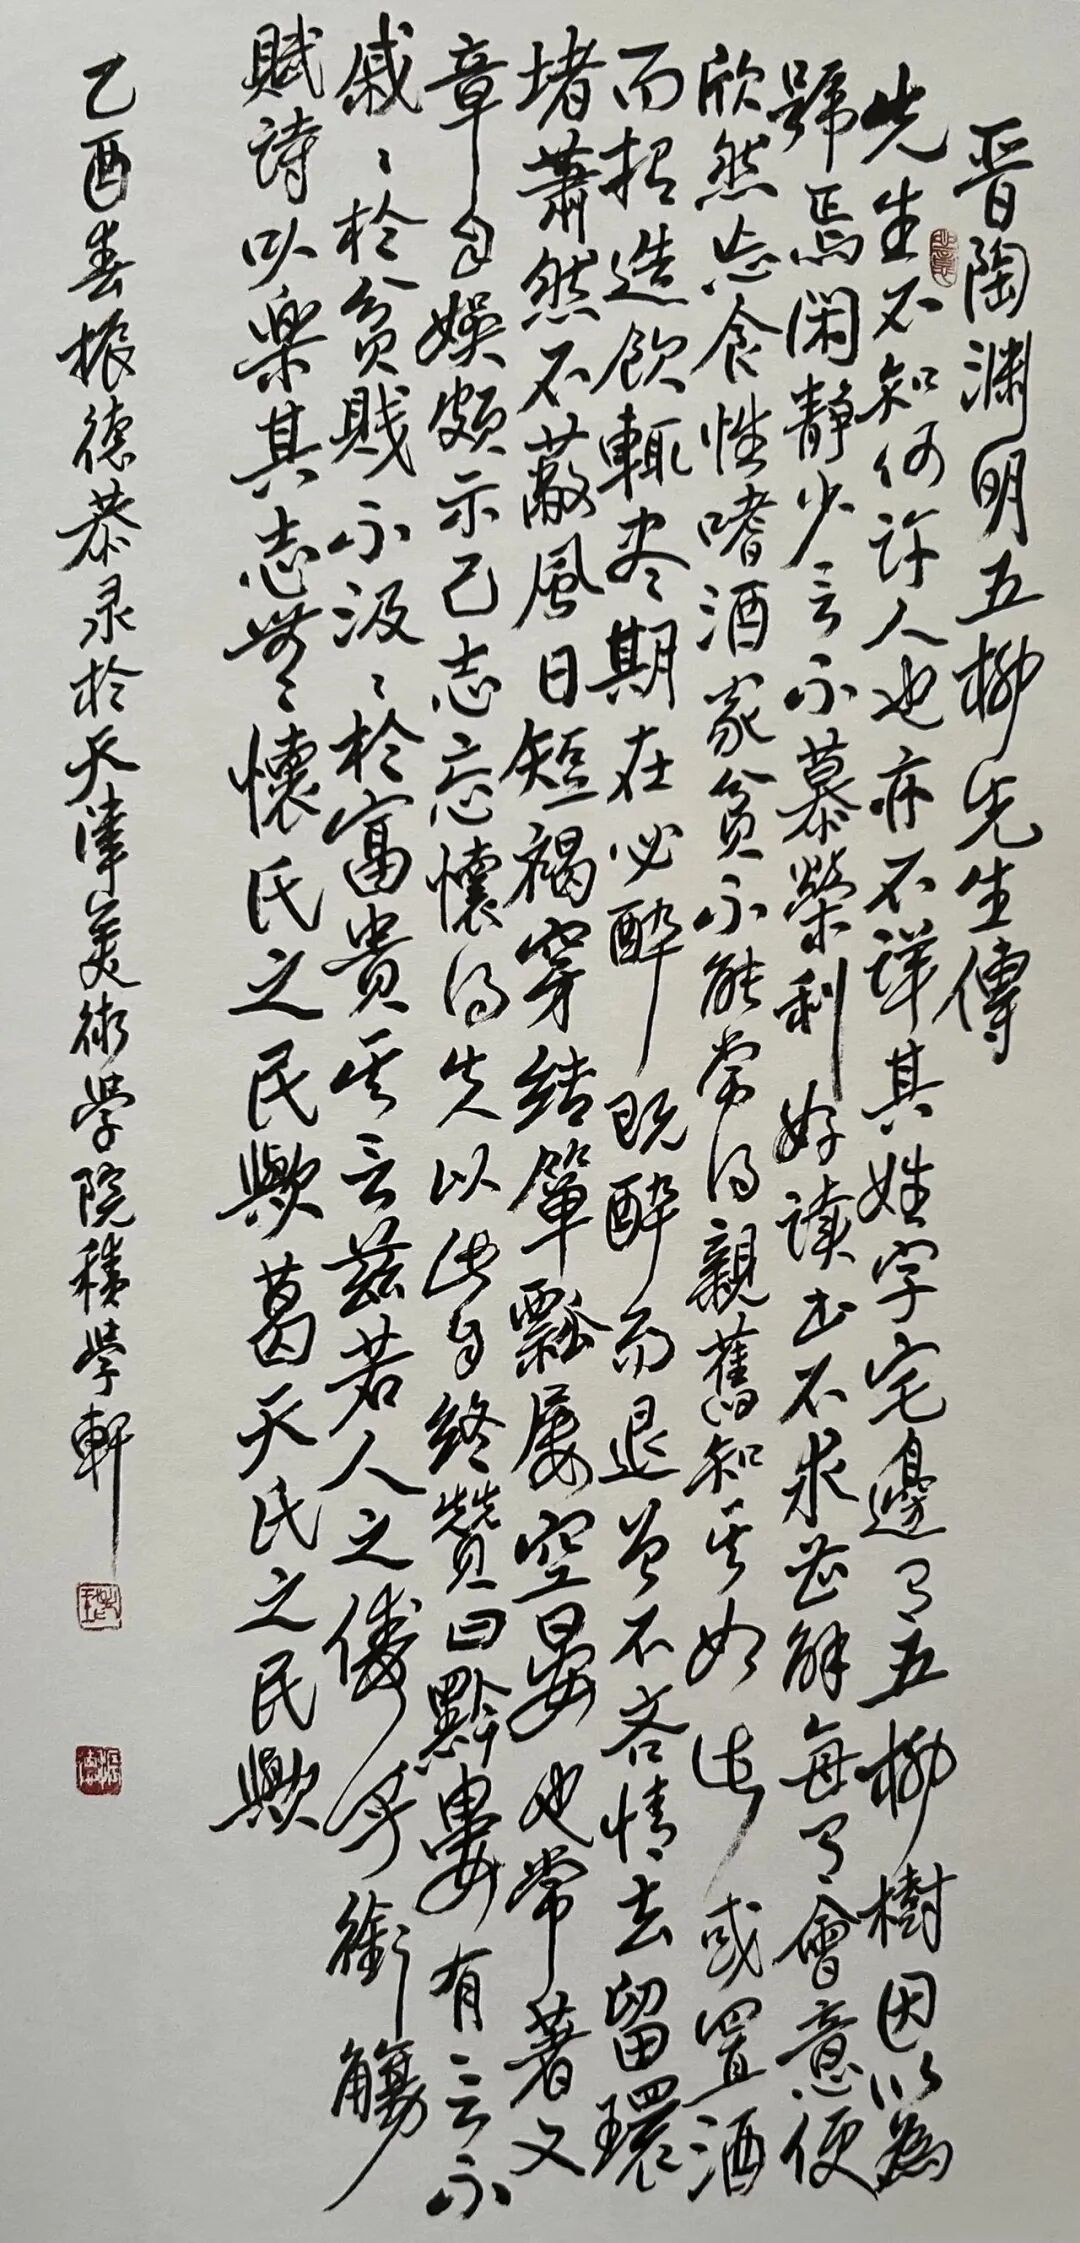 晋陶渊明五柳先生傳
先生不知何许人也亦不详其姓字宅邊有五柳樹因以為
號焉闲静少言不慕榮利好读书不求甚解每有會意便
欣然忘食性嗜酒家贫不能常得親舊知其如此或置酒
而招造飲輒尽期在必醉既醉而退曾不吝情去留環
堵萧然不蔽風日短褐穿结箪瓢屡空晏如也常著文
章自娱頗示己志忘懷得失以此自终赞曰黔婁有言不
戚〻於贫賤不汲〻於富贵其言兹若人之俦乎衔觴
賦詩以樂其志無〻懷氏之民歟葛天氏之民歟
乙酉春振德恭录於天津美術学院積学軒